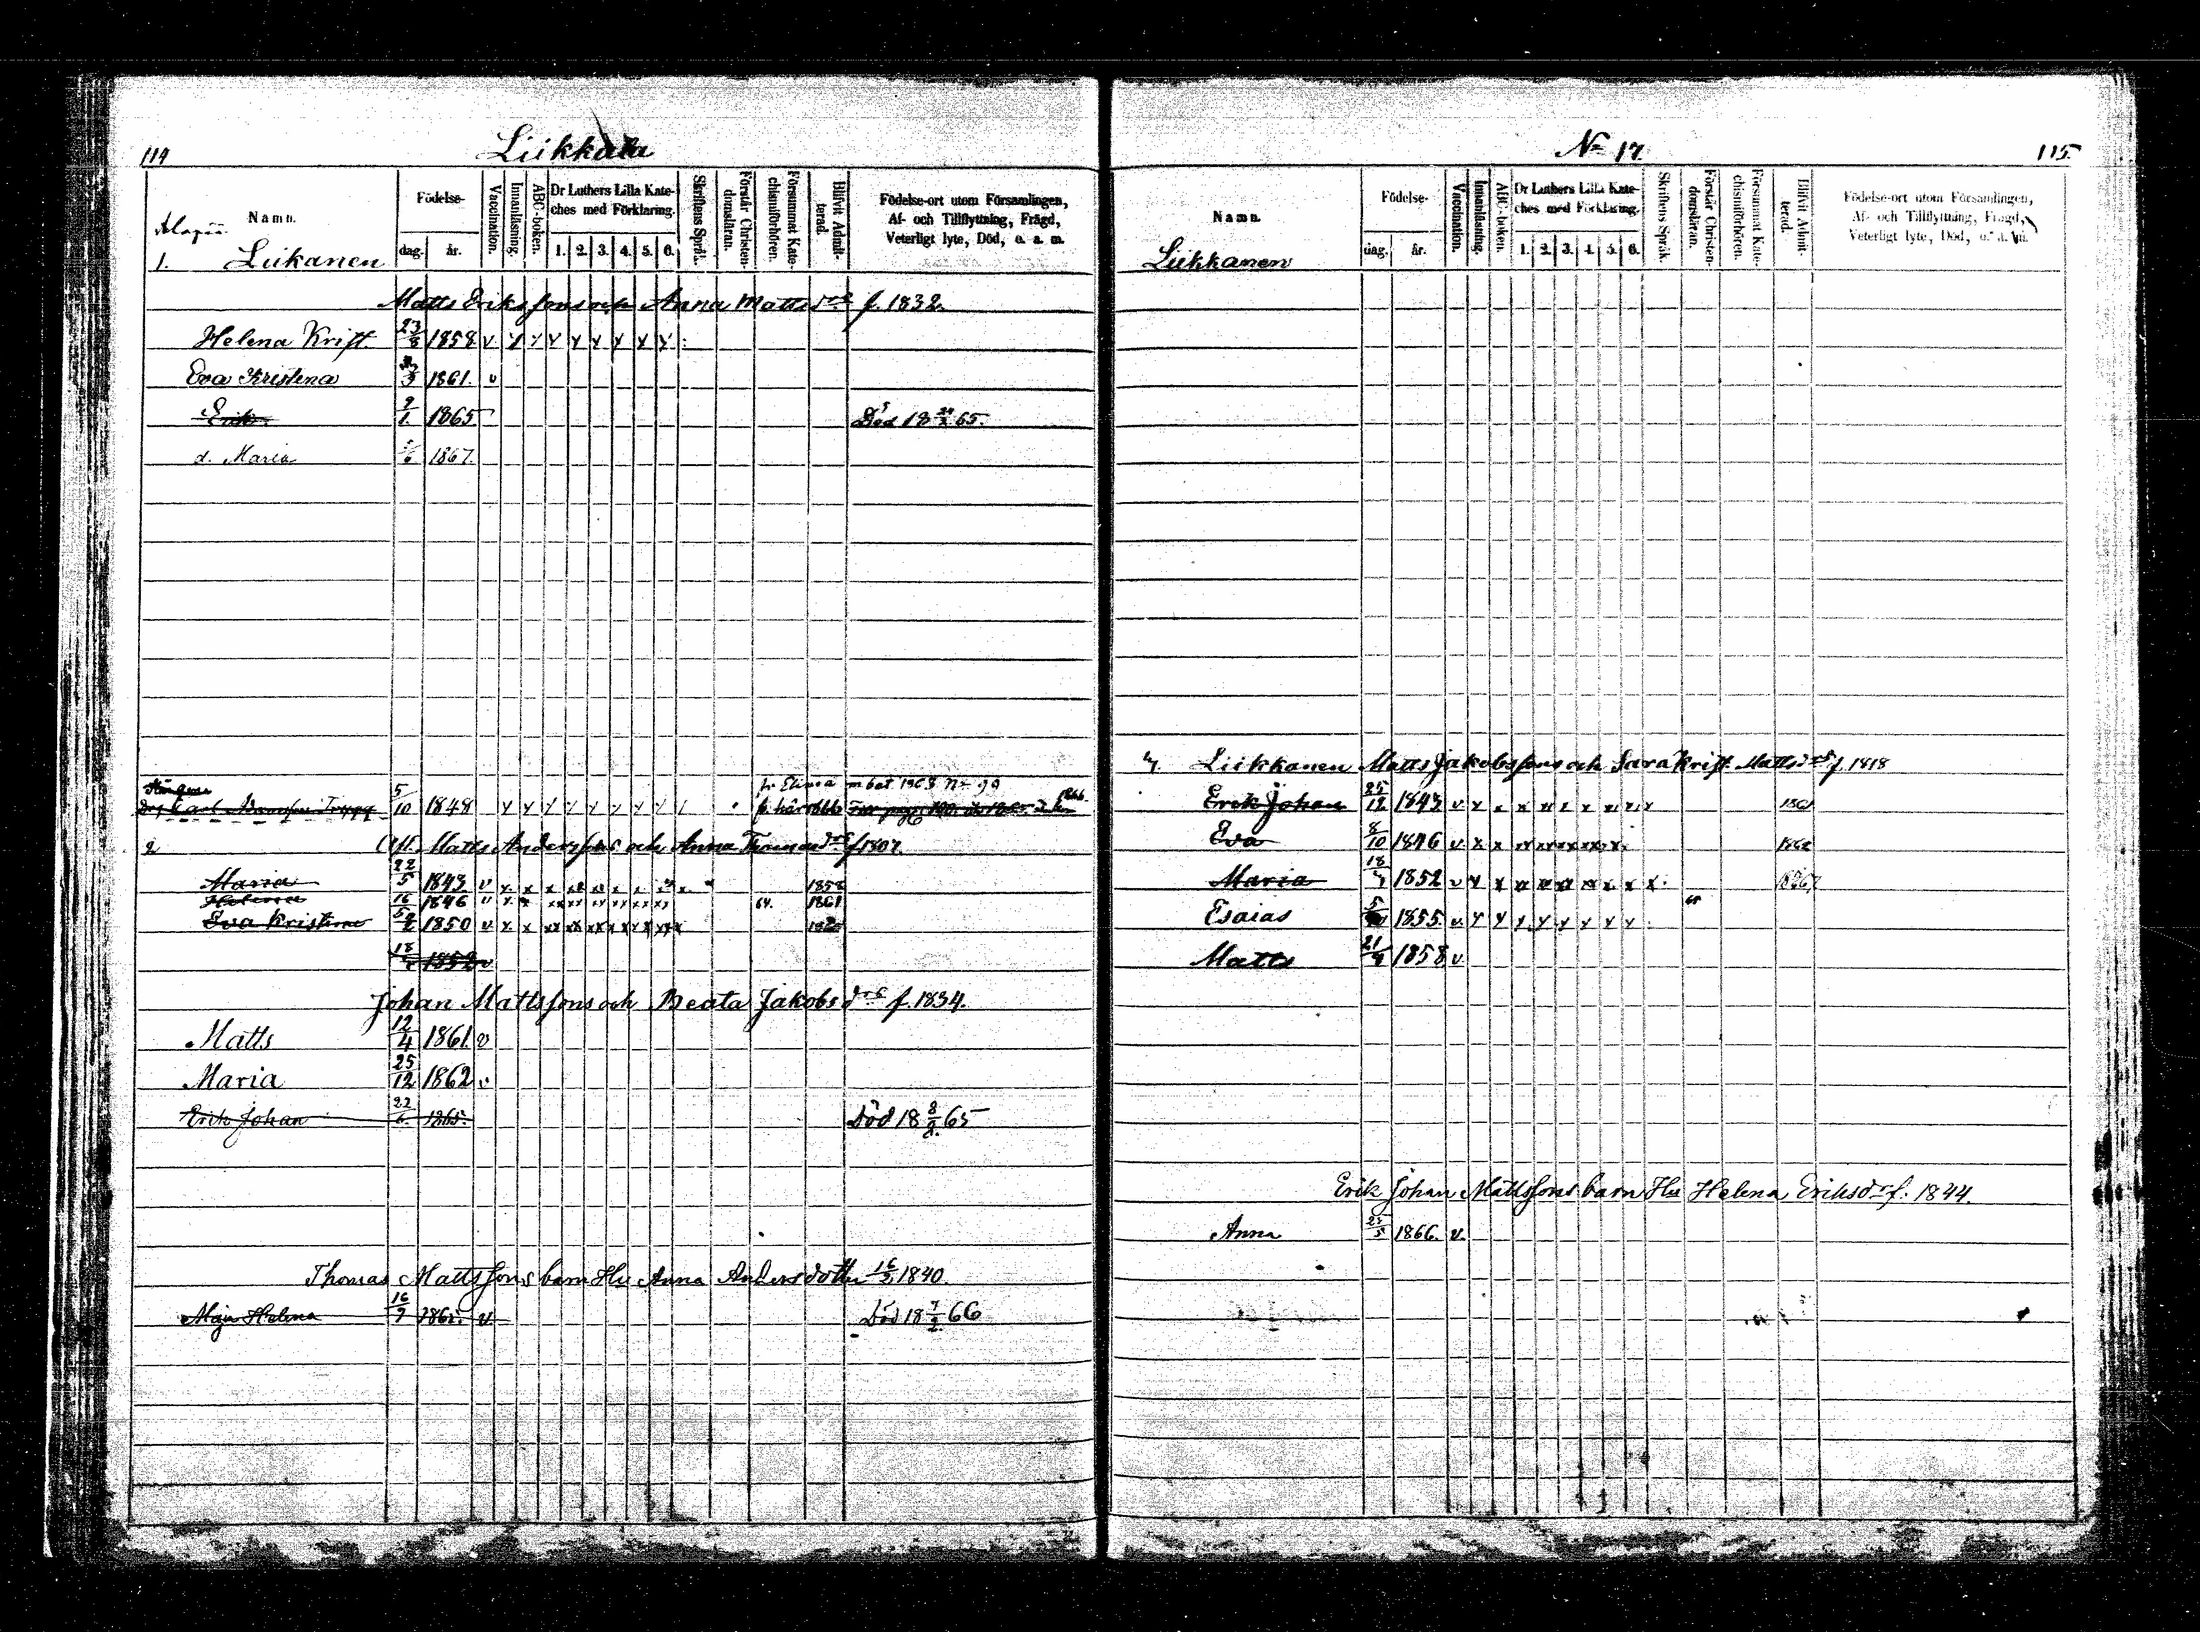 114
Liikkala
Namn.
Födelse-
dag.
år.
Vaccination.
Innanläsning.
ABC-boken.
Dr Luthers Lilla Kate-
ches med Förklaring.
1. 2. 3. 4. 5. 6.
Skriftens Språk.
Förstår Christen-
domsläran.
Försummat Kate-
chismiförhören.
Blifvit Admit-
terad.
Födelse-ort utom Församlingen,
Af- och Tillflyttning, Frägd,
Veterligt lyte, Död, o. a. m.
1. Liikanen
Matts Erikssons och Anna Mattsdr f. 1832.
Helena Krist. 23/8 1858 v
Eva Kristina 1861. v
Erik 9/1 1865 Död 18 65.
d. Maria 1867.
fr Elimä m bet. 1863
5/10 1848
2 Matts Anderssons och Anna f 1807.
Maria 22/5 1843 v 1858
Helena 16 1846 v 64. 1861
Eva Kristina 1850 v
18 1852 v
Johan Mattssons och Beata Jakobsdr f. 1834.
Matts 12/4 1861 v
Maria 25/12 1862 v
Erik Johan 22/6 1865. Död 18 8/8 65
Thomas Mattssons barn Hu Anna Andersdotter 16/2 1840.
Maja Helena 16/9 1865. v Död 18 7/2 66
No 17.
115.
Namn.
Födelse-
dag.
år.
Vaccination.
Innanläsning.
ABC-boken.
Dr Luthers Lilla Kate-
ches med Förklaring.
1. 2. 3. 4. 5. 6.
Skriftens Språk.
Förstår Christen-
domsläran.
Försummat Kate-
chismiförhören.
Blifvit Admit-
terad.
Födelse-ort utom Församlingen,
Af- och Tillflyttning, Frägd,
Veterligt lyte, Död, o. a. m.
Liikkanen
Liikkanen Matts Jakobssons och Sara Krist. Mattsdr f. 1818
Erik Johan 25/12 1843 v 1861
Eva 8/10 1846 v 1862
Maria 18 1852 v 1867
Esaias 5 1855. v
Matts 21 1858 v
Erik Johan Mattssons barn Hu Helena Eriksdr f. 1844.
Anna 1866. v